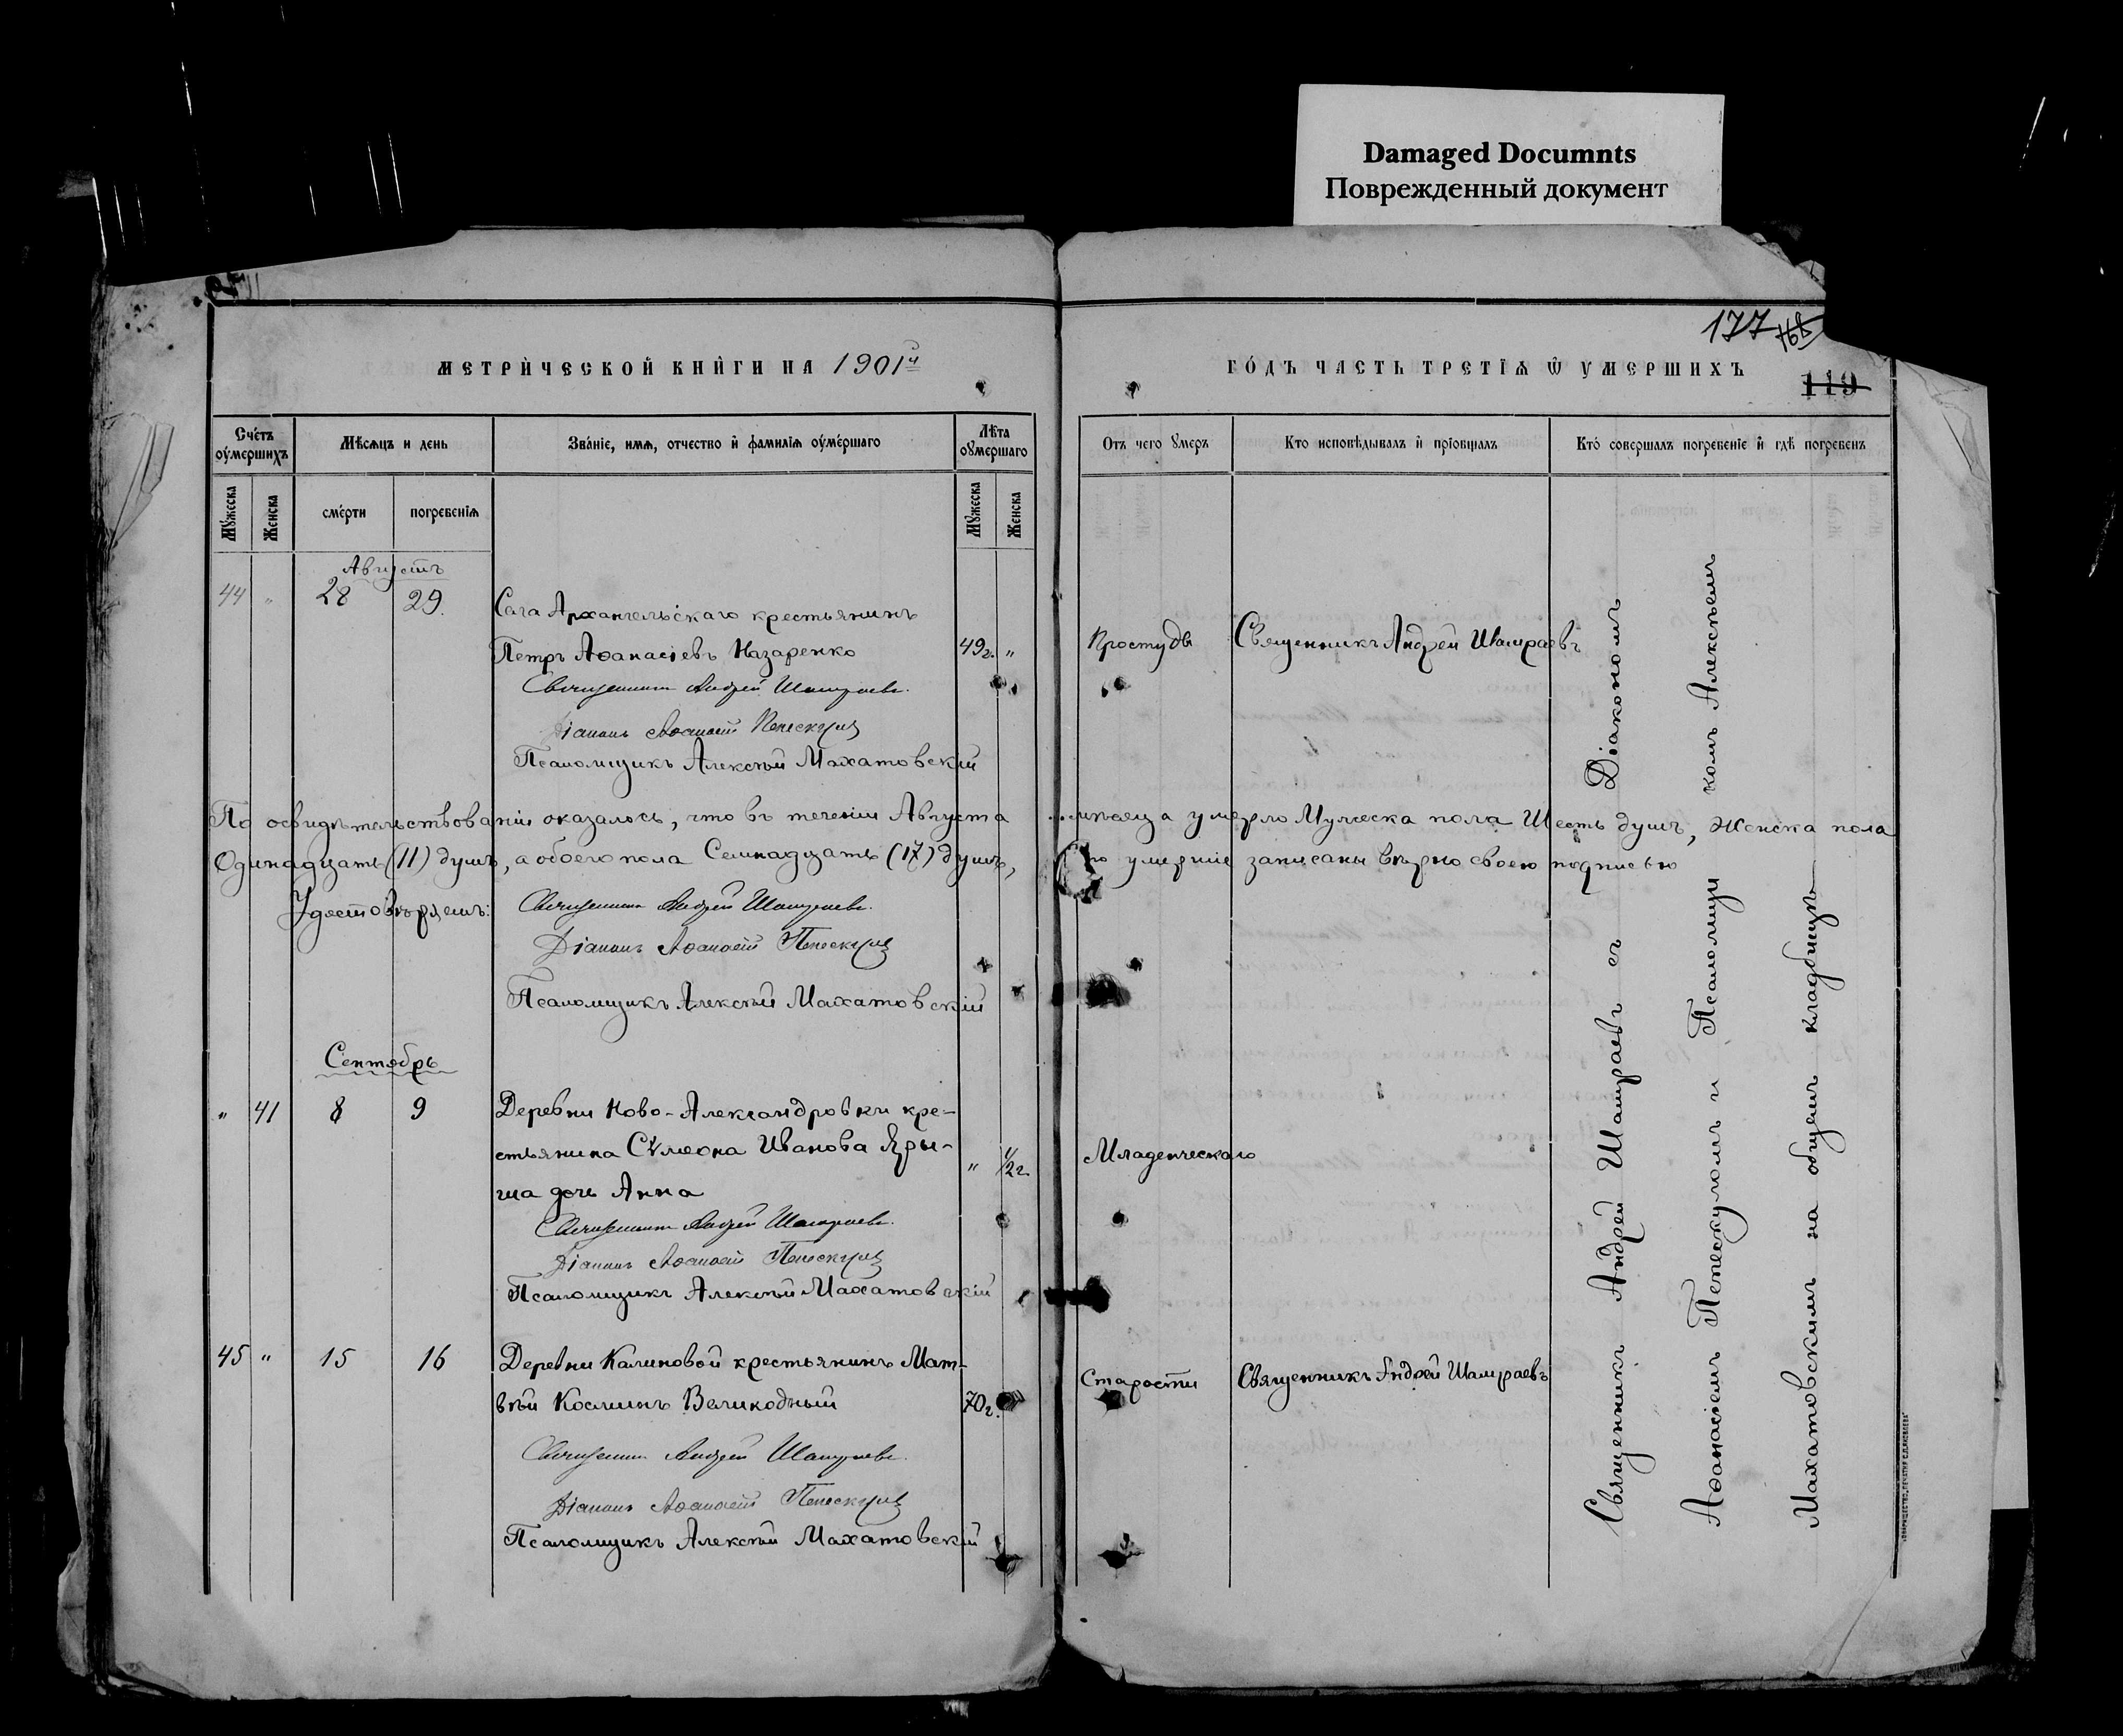 Damaged Documnts
Поврежденный документ
177 168
119
МЕТРИЧЕСКОЙ КНИГИ НА 1901й
ГОДЪ ЧАСТЬ ТРЕТІѦ Ѿ УМЕРШИХЪ
Счетъ оумершихъ
Мѣсѧцъ и день
Званіе, имѧ, отчество и фамиліѧ оумершаго
Лѣта оумершаго
Мужеска
Женска
смерти
погребеніѧ
Мужеска
Женска
Отъ чего умеръ
Кто исповѣдывалъ и пріобщалъ
Кто совершалъ погребеніе и гдѣ погребенъ
Августъ
44 " 28 29.
Села Архангельскаго крестьянинъ
Петръ Аѳанасіевъ Назаренко 49 г. "
Простуды
Священникъ Андрей Шамраевъ
Священникъ Андрей Шамраевъ.
Діаконъ Аѳанасій Пепескулъ
Псаломщикъ Алексѣй Махатовскій
По освидѣтельствованіи оказалось, что въ теченіи Августа мѣсяца умерло Мужеска пола Шесть душъ, Женска пола
Одинадцать (11) душъ, а обоего пола Семнадцать (17) душъ, умершіе записаны вѣрно своею подписью
Удостовѣряемъ:
Священникъ Андрей Шамраевъ.
Діаконъ Аѳанасій Пепескулъ
Псаломщикъ Алексѣй Махатовскій
Сентябрь
" 41 8 9
Деревни Ново-Александровки кре-
стьянина Сѵмеона Иванова
дочь Анна " 1/2 г.
Младенческаго
Священникъ Андрей Шамраевъ.
Діаконъ Аѳанасій Пепескулъ
Псаломщикъ Алексѣй Махатовскій
45 " 15 16
Деревни Калиновой крестьянинъ Мат-
вѣй Косминъ Великодный 70 г.
Старости
Священникъ Андрей Шамраевъ
Священникъ Андрей Шамраевъ.
Діаконъ Аѳанасій Пепескулъ
Псаломщикъ Алексѣй Махатовскій
Священникъ Андрей Шамраевъ съ Діакономъ
Аѳанасіемъ Пепескуломъ и Псаломщи комъ Алексѣемъ
Махатовскимъ на общемъ кладбищѣ